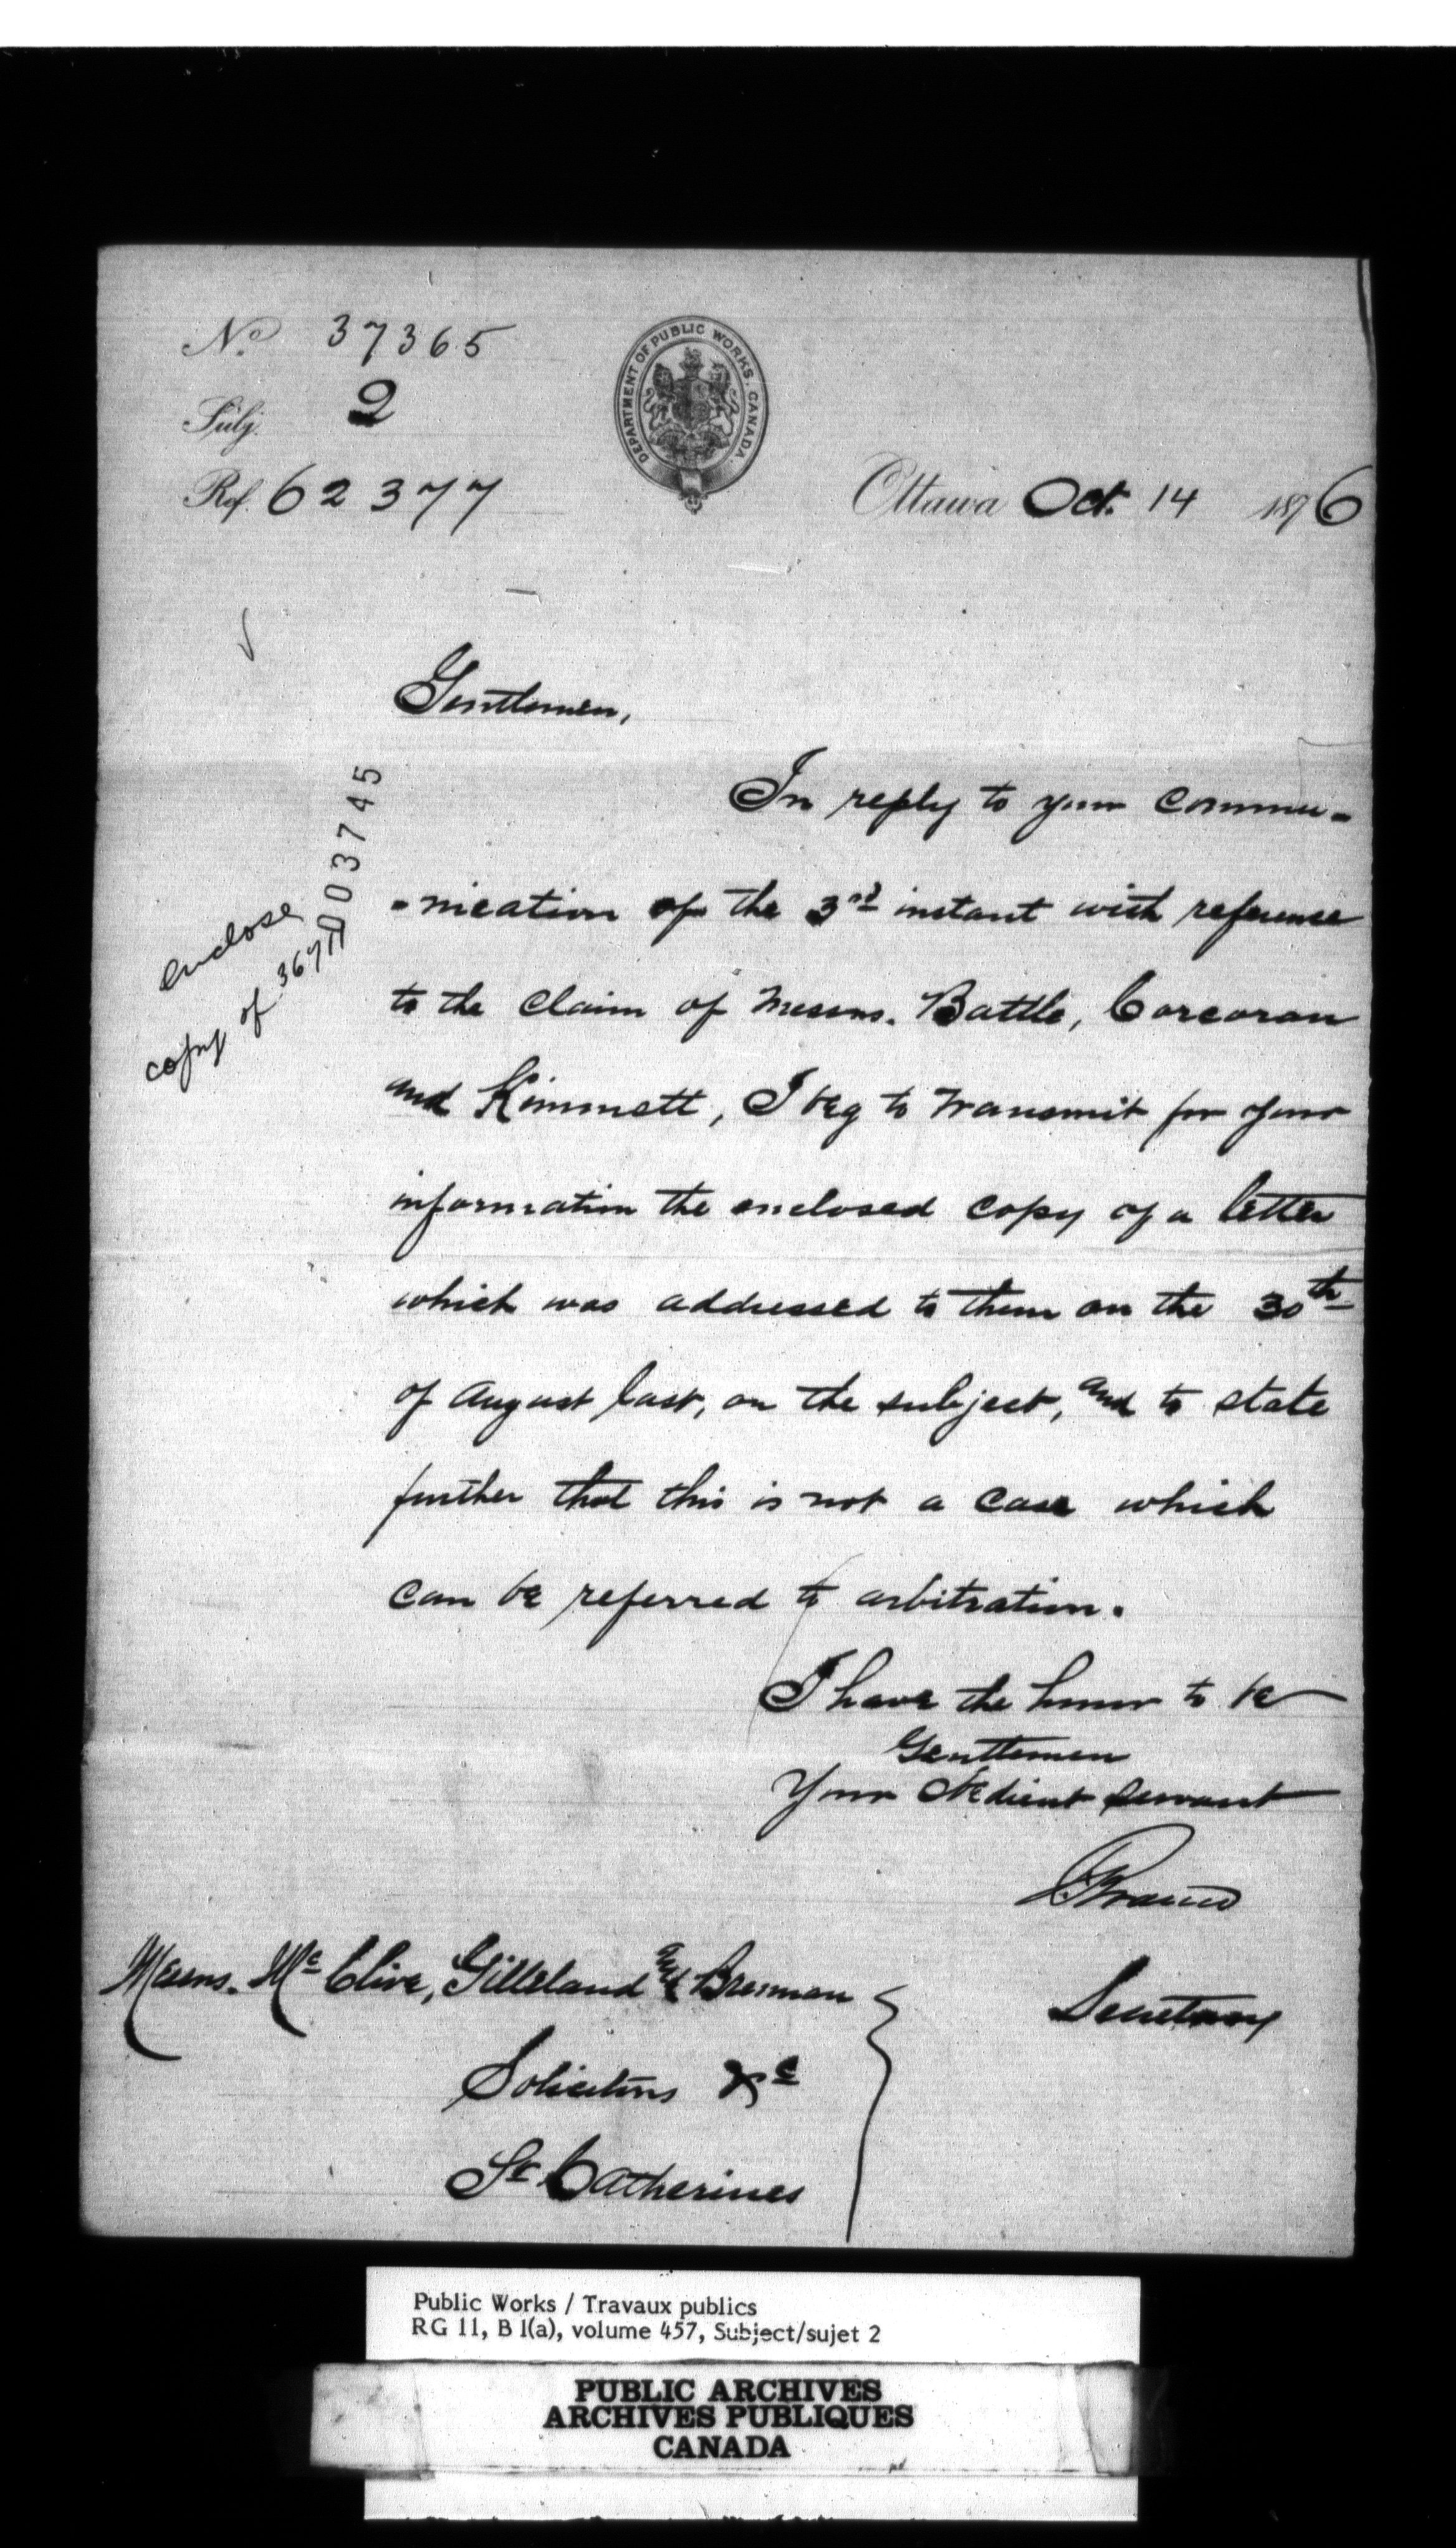 No. 37365
Subj. 2
Ref. 62377
DEPARTMENT OF PUBLIC WORKS. CANADA.
Ottawa Oct. 14 1876
Gentlemen,
In reply to your commu-
-nication of the 3rd instant with reference
to the claim of Messrs. Battle, Corcoran
and Kimmett, I beg to transmit for your
information the enclosed copy of a letter
which was addressed to them on the 30th
of August last, on the subject, and to state
further that this is not a case which
can be referred to arbitration.
I have the honor to be
Gentlemen
Your Obedient Servant
FBraun
Secretary
Messrs. Mc Clive, Gilleland and Brennan
Solicitors &c
St Catherines
003745
enclose
copy of
Public Works / Travaux publics
RG 11, B 1(a), volume 457, Subject/sujet 2
PUBLIC ARCHIVES
ARCHIVES PUBLIQUES
CANADA